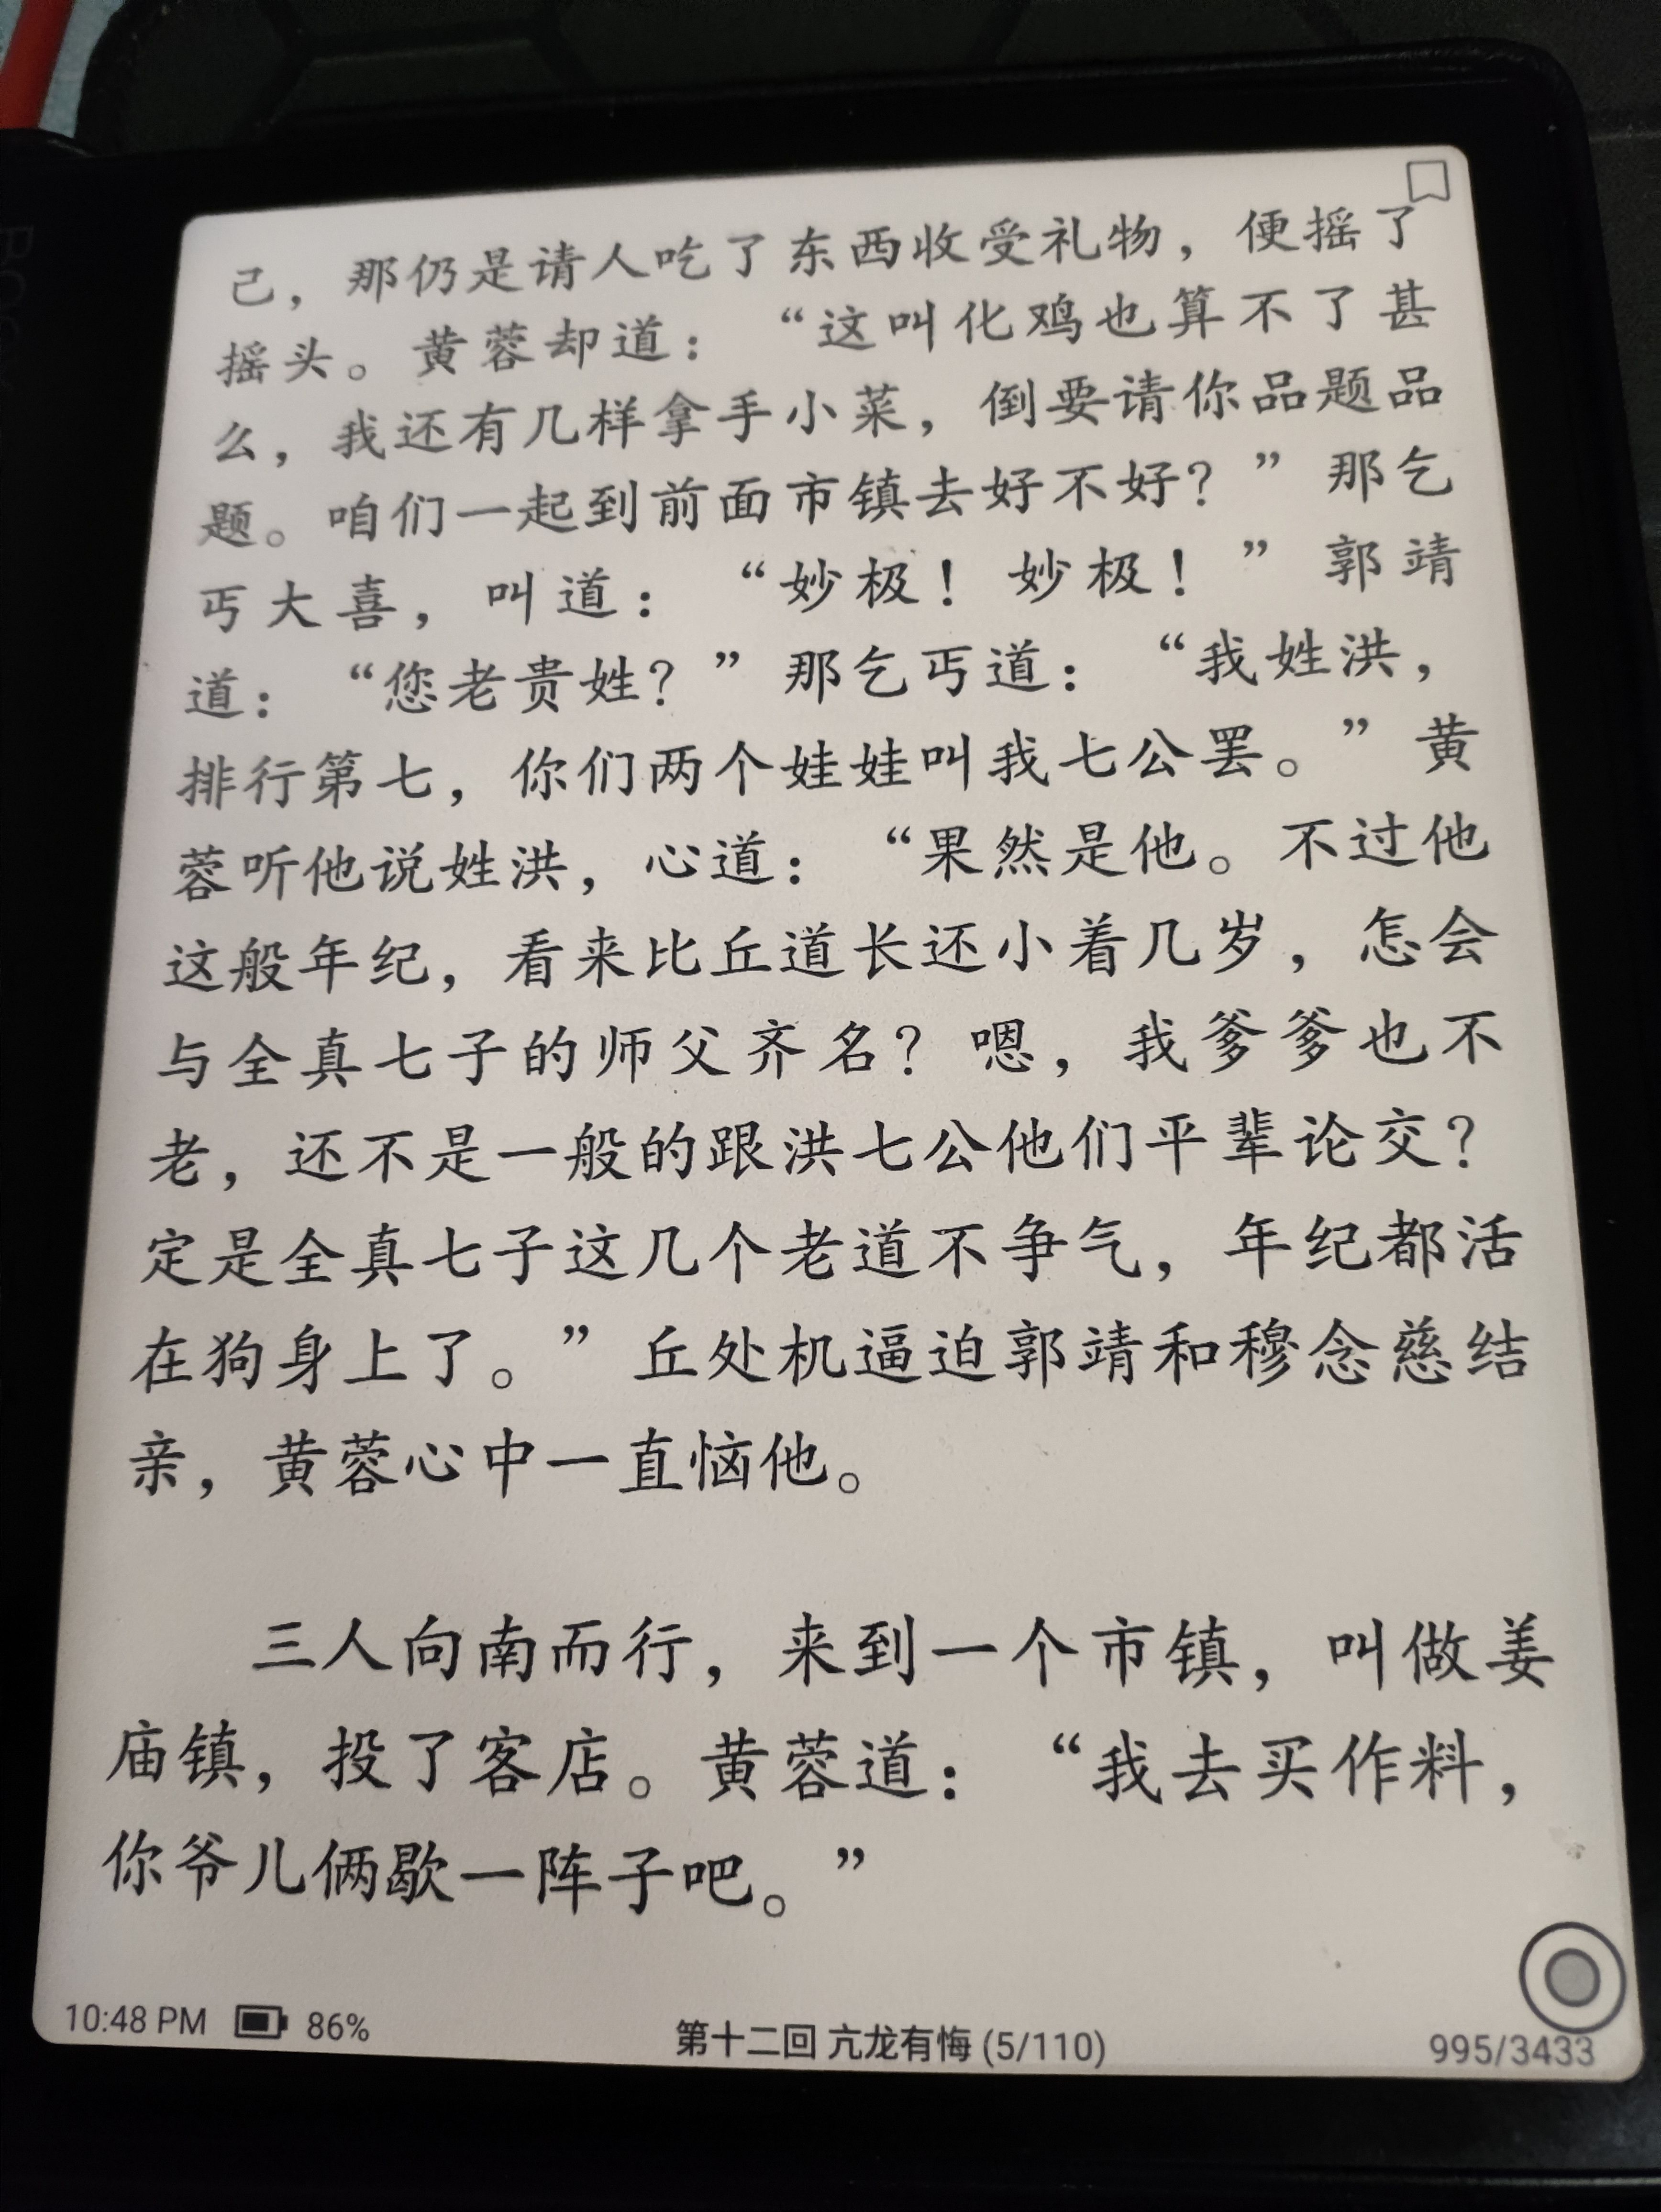 己，那仍是请人吃了东西收受礼物，便摇了
摇头。黄蓉却道：“这叫化鸡也算不了甚
么，我还有几样拿手小菜，倒要请你品题品
题。咱们一起到前面市镇去好不好？”那乞
丐大喜，叫道：“妙极！妙极！”郭靖
道：“您老贵姓？”那乞丐道：“我姓洪，
排行第七，你们两个娃娃叫我七公罢。”黄
蓉听他说姓洪，心道：“果然是他。不过他
这般年纪，看来比丘道长还小着几岁，怎会
与全真七子的师父齐名？嗯，我爹爹也不
老，还不是一般的跟洪七公他们平辈论交？
定是全真七子这几个老道不争气，年纪都活
在狗身上了。”丘处机逼迫郭靖和穆念慈结
亲，黄蓉心中一直恼他。
三人向南而行，来到一个市镇，叫做姜
庙镇，投了客店。黄蓉道：“我去买作料，
你爷儿俩歇一阵子吧。”
10:48 PM 86% 第十二回 亢龙有悔 (5/110) 995/3433